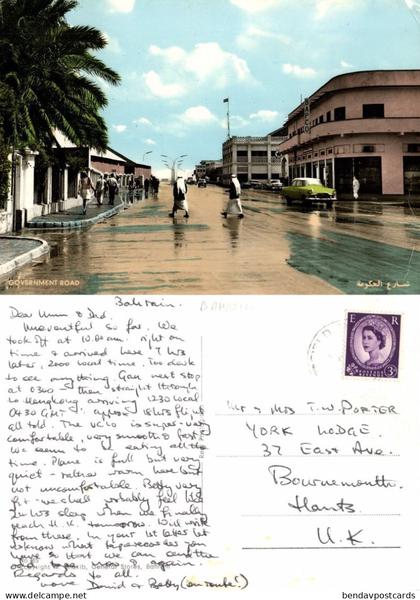 GOVERNMENT ROAD
شارع الحكومة
Bahrain.
Dear Mum & Dad.
Uneventful so far. We
took off at 10.0 am. right on
time & arrived here 7 hrs
later, 2000 local time. Too dark
to see anything. Gan next stop
at 0300 & then straight through
to Hongkong arriving 1230 local
0430 GMT, approx 18 hrs flight
all told. The VC10 is super-very
comfortable, very smooth & fast.
We seem to be eating all the
time. Plane is full but very
quiet - rather warm here but
not uncomfortable. Betty very
fit - we shall probably feel like
sleep when we finally
reach H.K. tomorrow. Will write
from there. In your 1st letter let
us know what taperecorder you
have so that we can send the
odd tape
Regards to all.
Love David & Betty (en route!)
Mr & Mrs T.W. PORTER
YORK LODGE.
37 EAST AVE.
Bournemouth.
Hants.
U.K.
E R
POSTAGE REVENUE
3D
www.benday.com/delcampe.net - bendavpostcards